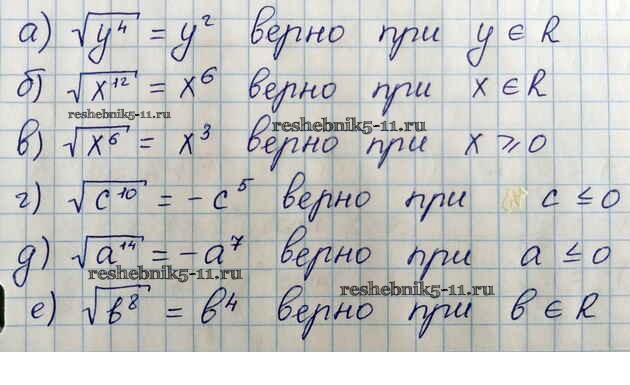 а) √y⁴ = y² верно при y ∈ R
б) √x¹² = x⁶ верно при x ∈ R
reshebnik5-11.ru
reshebnik5-11.ru
в) √x⁶ = x³ верно при x ⩾ 0
г) √c¹⁰ = -c⁵ верно при c ≤ 0
д) √a¹⁴ = -a⁷ верно при a ≤ 0
reshebnik5-11.ru
reshebnik5-11.ru
е) √b⁸ = b⁴ верно при b ∈ R